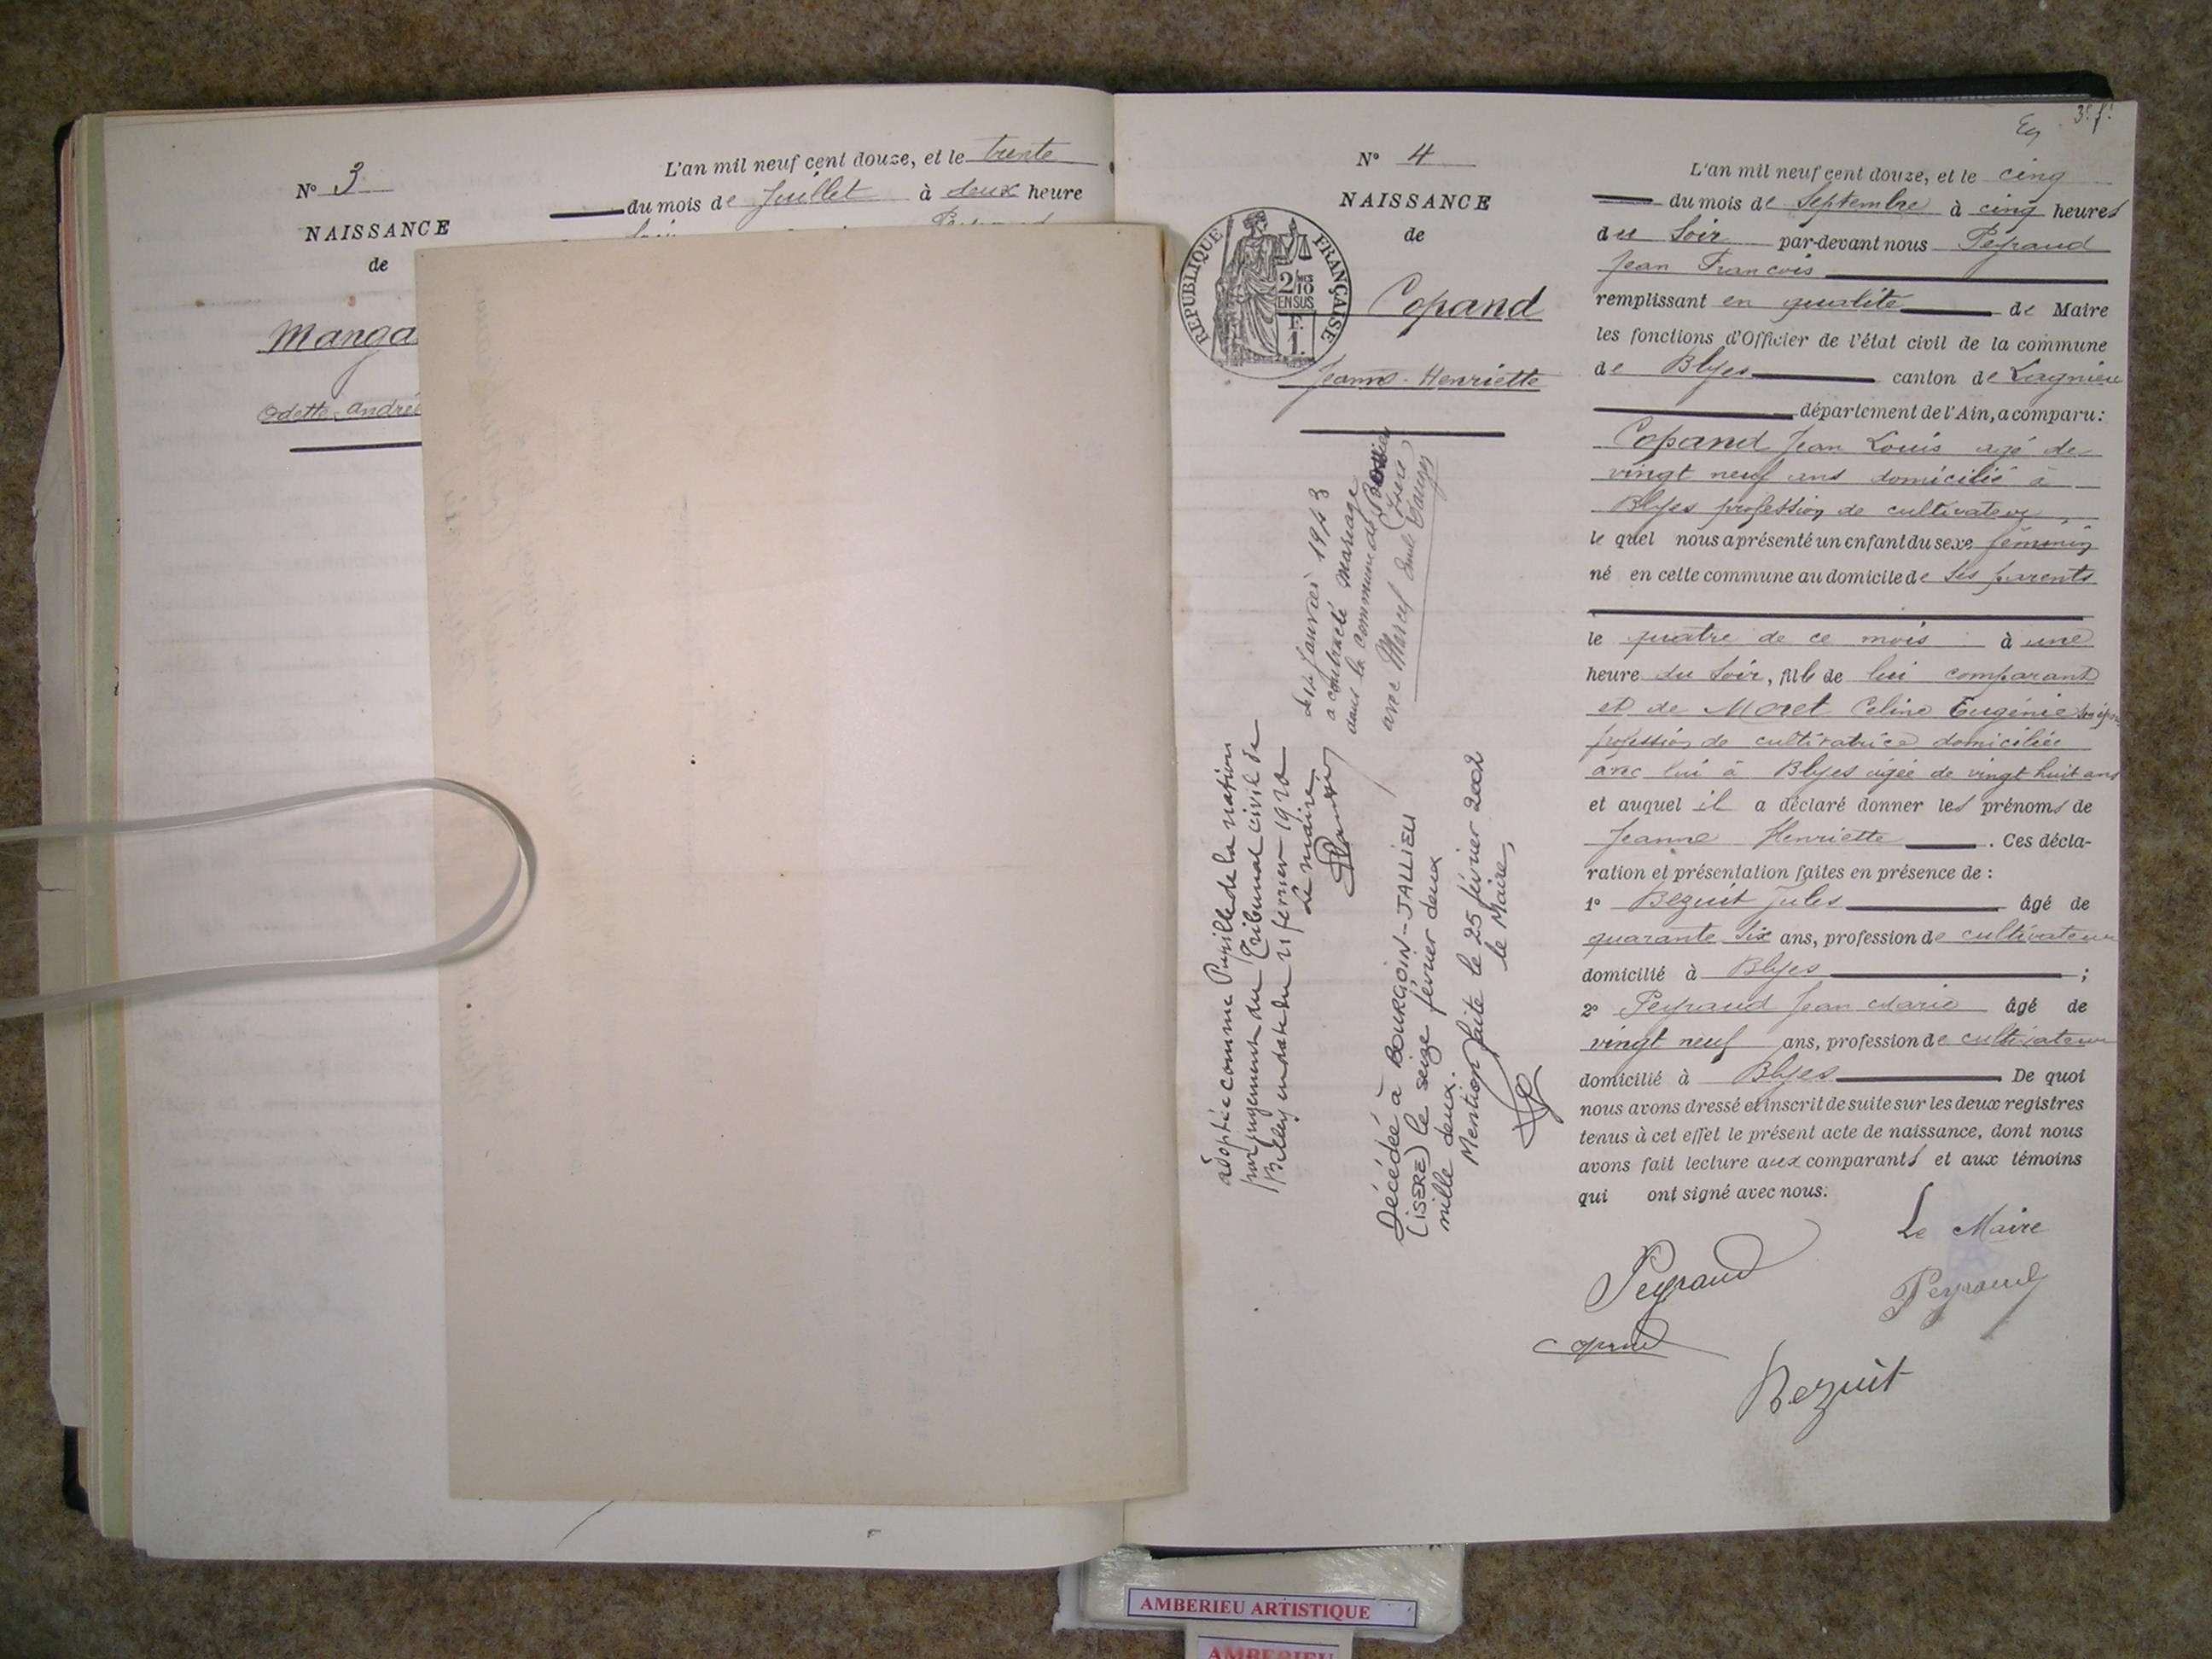 N° 3
NAISSANCE
de
Manga
Odette Andrée
L'an mil neuf cent douze, et le trente
du mois de Juillet à deux heure
3e f.
N° 4
NAISSANCE
de
RÉPUBLIQUE FRANÇAISE
2/10
EN SUS
F.
1.
Copand
Jeanne-Henriette
adoptée comme Pupille de la nation
par jugement du Tribunal civil de
Belley en date du
février 1920
Le maire
Janvier 1943
a contracté mariage
dans la commune de
(Isère)
avec Marcel
Décédée à BOURGOIN-JALLIEU
(ISERE) le seize février deux
mille deux.
Mention faite le 25 février 2002
le Maire,
L'an mil neuf cent douze, et le cinq
du mois de Septembre à cinq heures
du Soir par-devant nous Peyraud
Jean François
remplissant en qualité de Maire
les fonctions d'Officier de l'état civil de la commune
de Blyes canton de Lagnieu
département de l'Ain, a comparu :
Copand Jean Louis agé de
vingt neuf ans domicilié à
Blyes profession de cultivateur
le quel nous a présenté un enfant du sexe féminin
né en cette commune au domicile de ses parents
le quatre de ce mois à une
heure du Soir, fille de lui comparant
et de Moret Celine Eugénie
profession de cultivatrice domiciliée
avec lui à Blyes agée de vingt huit ans
et auquel il a déclaré donner les prénoms de
Jeanne Henriette . Ces décla-
ration et présentation faites en présence de :
1° Bezuit Jules âgé de
quarante six ans, profession de cultivateur
domicilié à Blyes ;
2° Peyraud Jean Marie âgé de
vingt neuf ans, profession de cultivateur
domicilié à Blyes De quoi
nous avons dressé et inscrit de suite sur les deux registres
tenus à cet effet le présent acte de naissance, dont nous
avons fait lecture aux comparants et aux témoins
qui ont signé avec nous.
Le Maire
Peyraud
Peyraud
Copand
Bezuit
AMBERIEU ARTISTIQUE
AMBERIEU